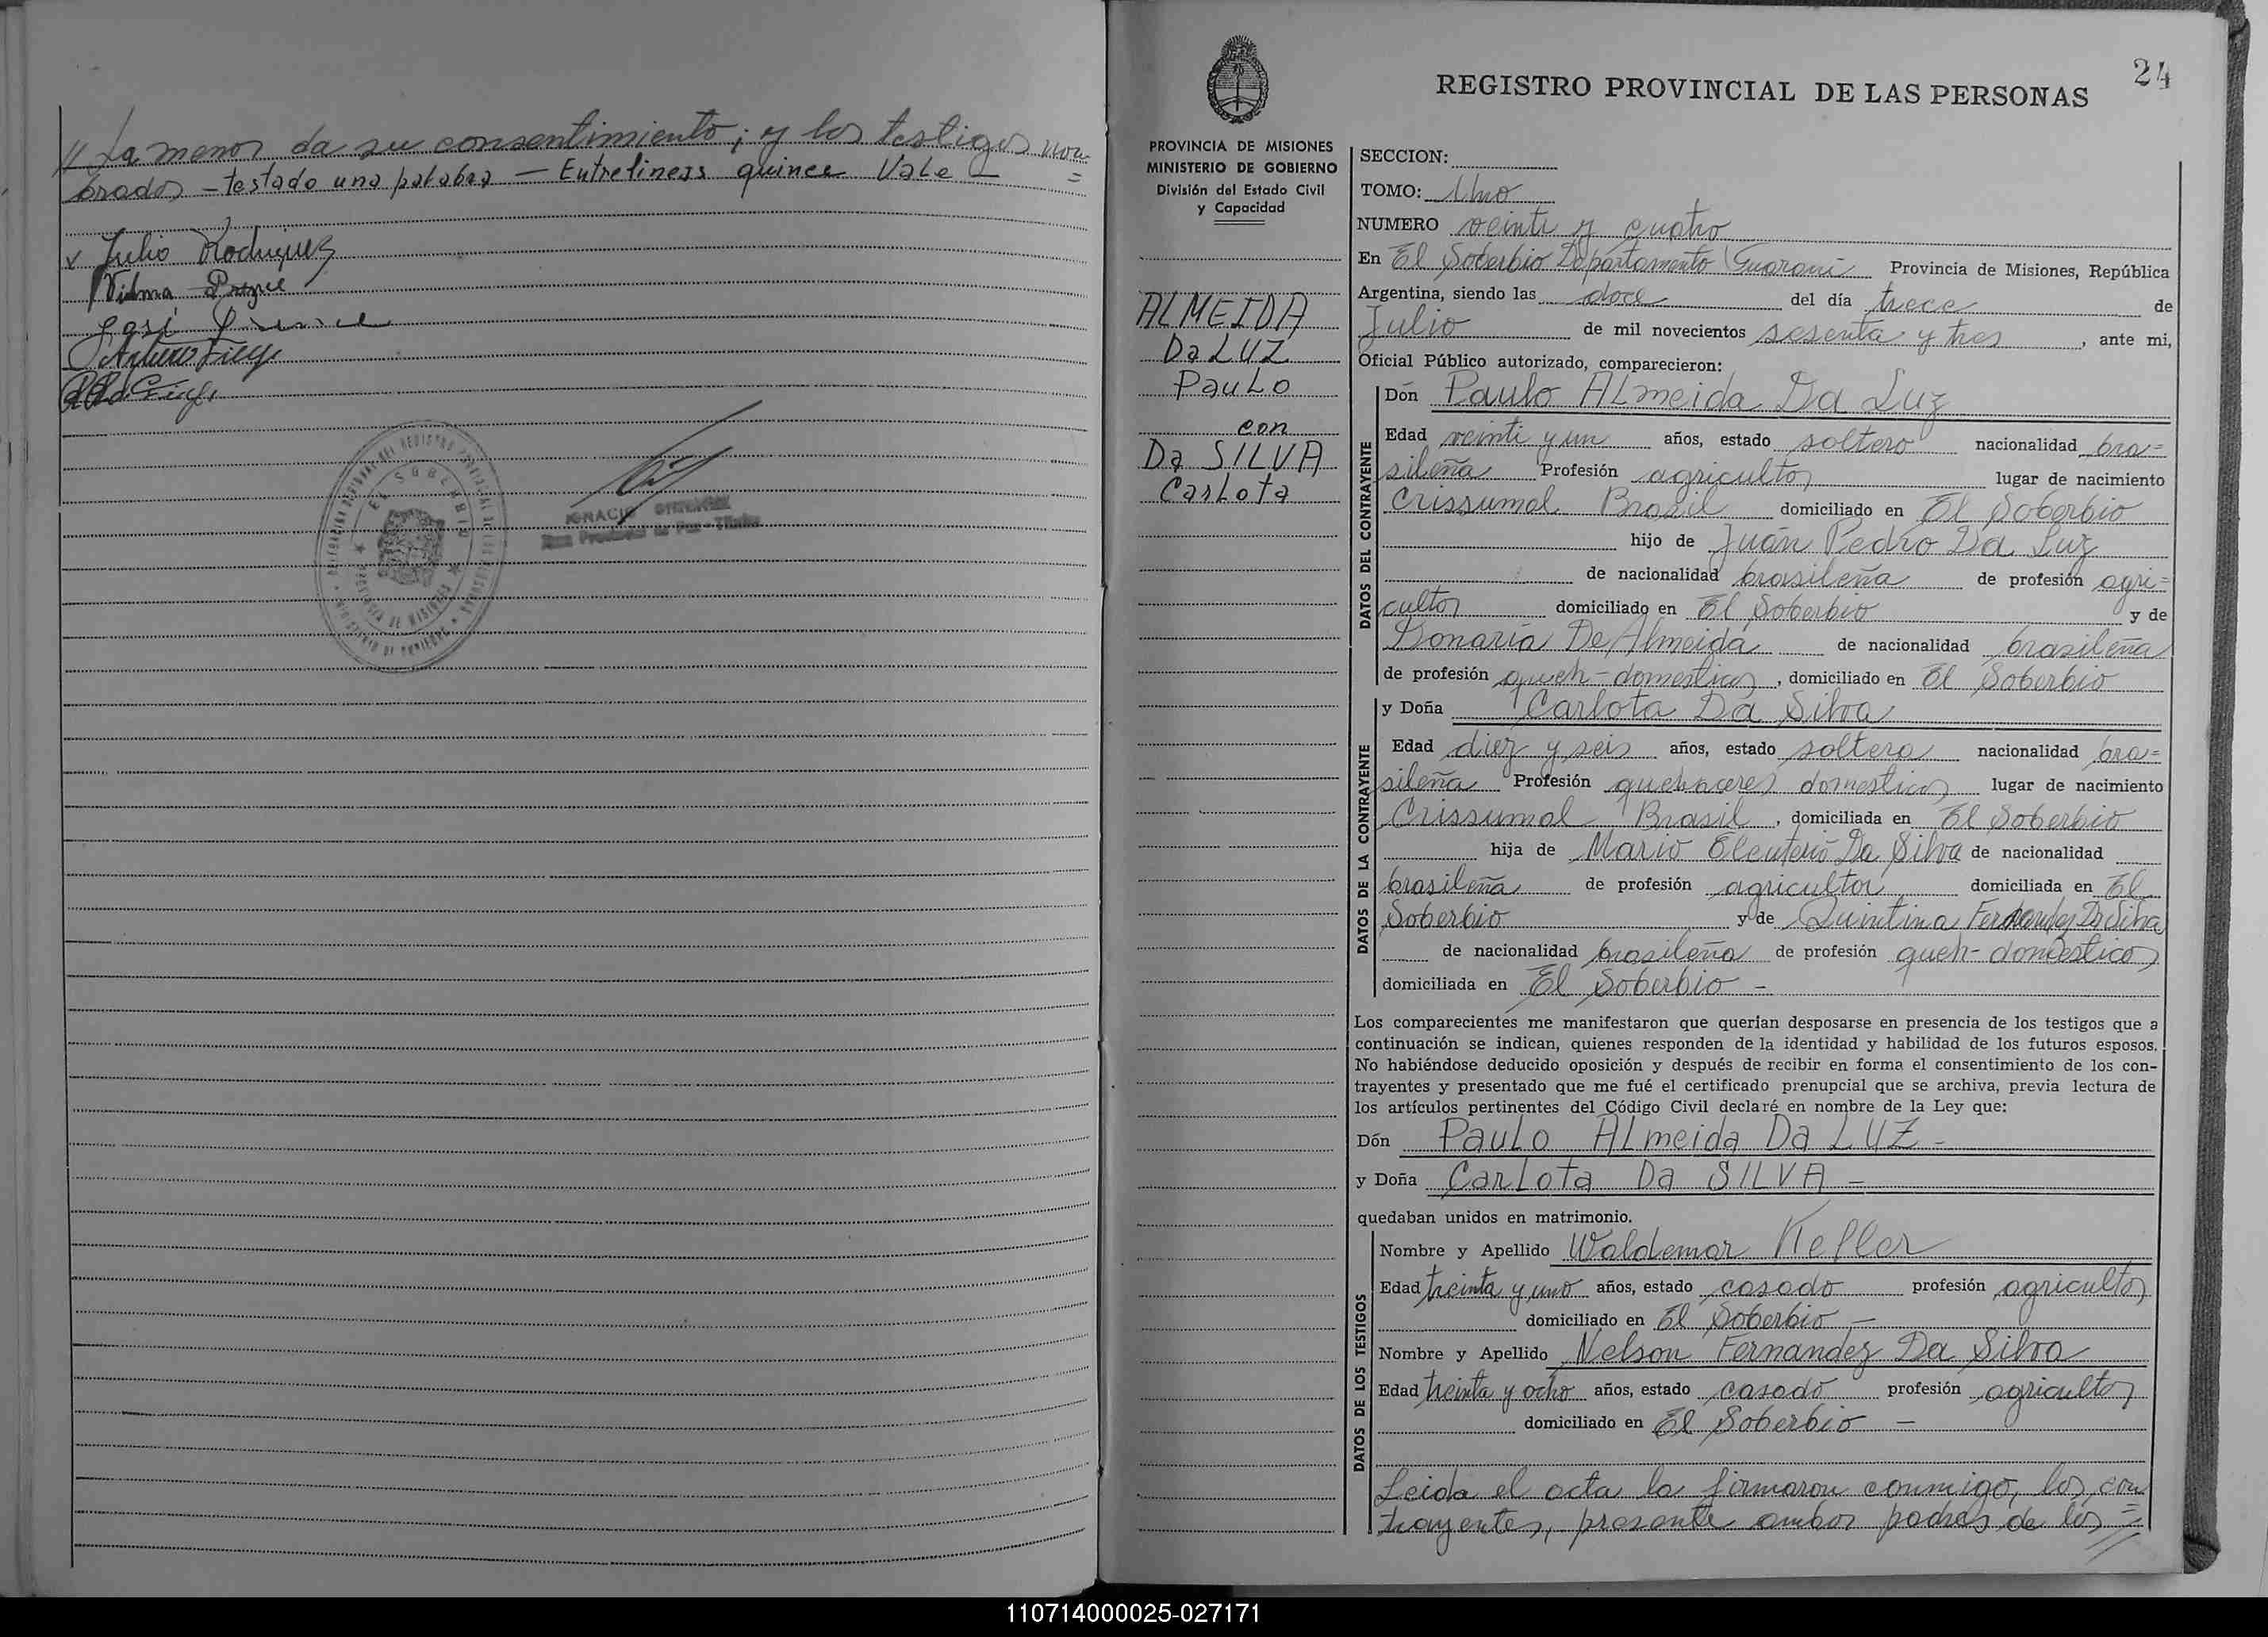 // La menor da su consentimiento; y los testigos nom
brados - testado una palabra - Entrelineas quince Vale -
x Julio Rodriguez
Vilma
José
Arturo
REGISTRO
EL SOBERBIO
PROVINCIA DE MISIONES
IGNACIO
24
REGISTRO PROVINCIAL DE LAS PERSONAS
PROVINCIA DE MISIONES
MINISTERIO DE GOBIERNO
División del Estado Civil
y Capacidad
ALMEIDA
Da LUZ
PauLo
con
Da SILVA
CarLota
SECCION:
TOMO: Uno
NUMERO veinti y cuatro
En El Soberbio Departamento Guarani Provincia de Misiones, República
Argentina, siendo las doce del día trece de
Julio de mil novecientos sesenta y tres, ante mi,
Oficial Público autorizado, comparecieron:
DATOS DEL CONTRAYENTE
Dón Paulo ALmeida Da Luz
Edad veinti y un años, estado soltero nacionalidad bra=
sileña Profesión agricultor lugar de nacimiento
Crissumal Brasil domiciliado en El Soberbio
hijo de Juan Pedro Da Luz
de nacionalidad brasileña de profesión agri=
cultor domiciliado en El Soberbio y de
Donaria De Almeida de nacionalidad brasileña
de profesión queh-domesticos, domiciliado en El Soberbio
DATOS DE LA CONTRAYENTE
y Doña Carlota Da Silva
Edad diez y seis años, estado soltera nacionalidad bra=
sileña Profesión quehaceres domesticos lugar de nacimiento
Crissumal Brasil, domiciliada en El Soberbio
hija de Mario Eleuterio Da Silva de nacionalidad
brasileña de profesión agricultor domiciliada en El
Soberbio y de Quintina Fernandez Da Silva
de nacionalidad brasileña de profesión queh-domesticos
domiciliada en El Soberbio -
Los comparecientes me manifestaron que querían desposarse en presencia de los testigos que a
continuación se indican, quienes responden de la identidad y habilidad de los futuros esposos.
No habiéndose deducido oposición y después de recibir en forma el consentimiento de los con-
trayentes y presentado que me fué el certificado prenupcial que se archiva, previa lectura de
los artículos pertinentes del Código Civil declaré en nombre de la Ley que:
Dón PauLo ALmeida Da LUZ -
y Doña CarLota Da SILVA -
quedaban unidos en matrimonio.
DATOS DE LOS TESTIGOS
Nombre y Apellido Waldemar Keller
Edad treinta y uno años, estado casado profesión agricultor
domiciliado en El Soberbio -
Nombre y Apellido Nelson Fernandez Da Silva
Edad treinta y ocho años, estado casado profesión agricultor
domiciliado en El Soberbio -
Leida el acta la firmaron conmigo, los con
trayentes, presente ambos padres de los =//
110714000025-027171